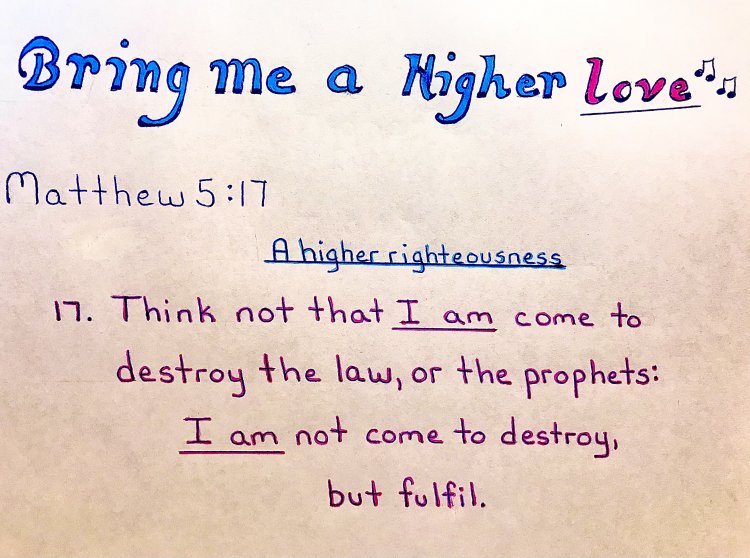 Bring me a Higher love
Matthew 5:17
A higher righteousness
17. Think not that I am come to
destroy the law, or the prophets:
I am not come to destroy,
but fulfil.